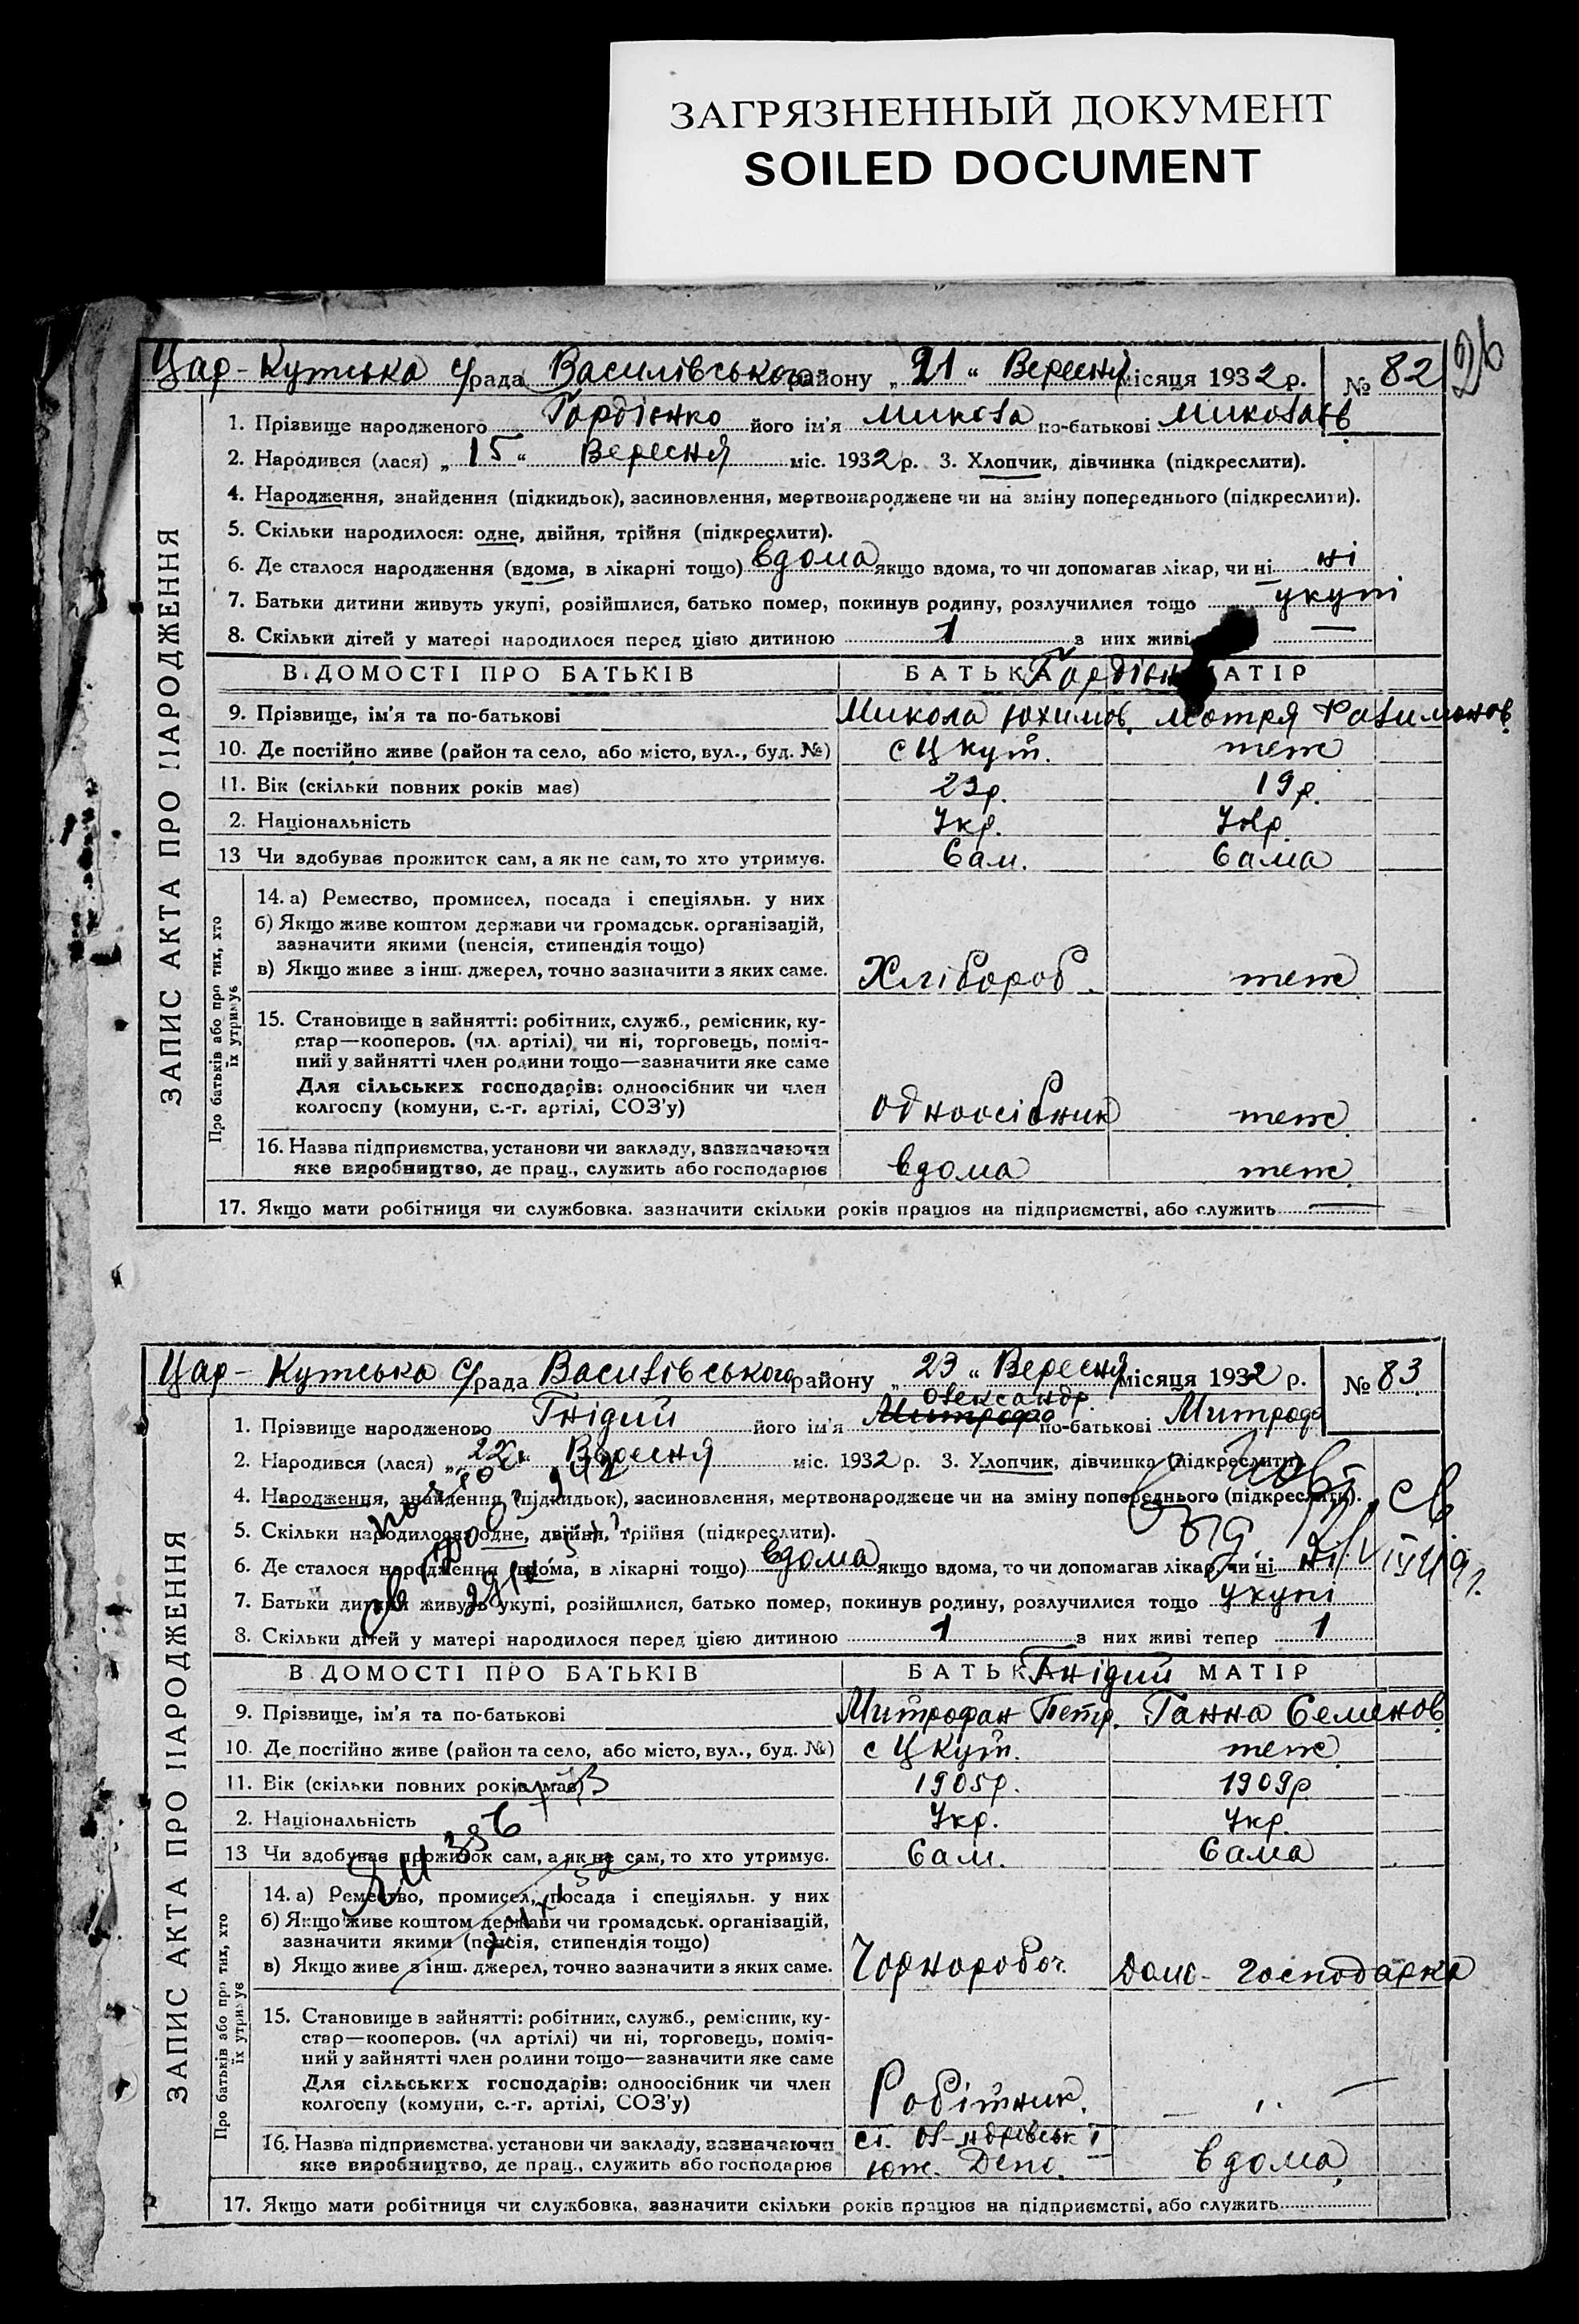 ЗАГРЯЗНЕННЫЙ ДОКУМЕНТ
SOILED DOCUMENT
26
Цар-Кутська с/рада Василівського району „21“ Вересня місяця 1932 р. № 82
ЗАПИС АКТА ПРО НАРОДЖЕННЯ
1. Прізвище народженого Гордієнко його ім'я Микола по-батькові Миколаєв
2. Народився (лася) „15“ Вересня міс. 1932 р. 3. Хлопчик, дівчинка (підкреслити).
4. Народження, знайдення (підкидьок), засиновлення, мертвонароджене чи на зміну попереднього (підкреслити).
5. Скільки народилося: одне, двійня, трійня (підкреслити).
6. Де сталося народження (вдома, в лікарні тощо) вдома якщо вдома, то чи допомагав лікар, чи ні ні
7. Батьки дитини живуть укупі, розійшлися, батько помер, покинув родину, розлучилися тощо укупі
8. Скільки дітей у матері народилося перед цією дитиною 1 з них живі —
ВІДОМОСТІ ПРО БАТЬКІВ БАТЬКА Гордієн АТІР
9. Прізвище, ім'я та по-батькові Микола Юхимов. Мотря Фалимонов.
10. Де постійно живе (район та село, або місто, вул., буд. №) с Цкут. теж
11. Вік (скільки повних років має) 23р. 19р.
2. Національність Укр. Укр.
13 Чи здобуває прожиток сам, а як не сам, то хто утримує. Сам. Сама
Про батьків або про тих, хто їх утримує
14. а) Ремество, промисел, посада і спеціяльн. у них
б) Якщо живе коштом держави чи громадськ. організацій,
зазначити якими (пенсія, стипендія тощо)
в) Якщо живе з інш. джерел, точно зазначити з яких саме. Хлібороб. теж
15. Становище в зайнятті: робітник, служб., ремісник, ку-
стар—кооперов. (чл. артілі) чи ні, торговець, поміч-
ний у зайнятті член родини тощо—зазначити яке саме
Для сільських господарів: одноосібник чи член
колгоспу (комуни, с.-г. артілі, СОЗ'у) одноосібник теж
16. Назва підприємства, установи чи закладу, зазначаючи
яке виробництво, де прац., служить або господарює вдома теж.
17. Якщо мати робітниця чи службовка, зазначити скільки років працює на підприємстві, або служить —
Цар-Кутська с/рада Василівського району „23“ Вересня місяця 1932 р. № 83
ЗАПИС АКТА ПРО НАРОДЖЕННЯ
Олександр.
1. Прізвище народженого Гнідий його ім'я Митрофо по-батькові Митроф
2. Народився (лася) „22“ Вересня міс. 1932 р. 3. Хлопчик, дівчинка (підкреслити).
4. Народження, знайдення (підкидьок), засиновлення, мертвонароджене чи на зміну попереднього (підкреслити).
5. Скільки народилося: одне, двійня, трійня (підкреслити).
6. Де сталося народження (вдома, в лікарні тощо) вдома якщо вдома, то чи допомагав лікар, чи ні ні
7. Батьки дитини живуть укупі, розійшлися, батько помер, покинув родину, розлучилися тощо укупі
8. Скільки дітей у матері народилося перед цією дитиною 1 з них живі тепер 1
ВІДОМОСТІ ПРО БАТЬКІВ БАТЬКА Гнідий МАТІР
9. Прізвище, ім'я та по-батькові Митрофан Петр. Ганна Семенов
10. Де постійно живе (район та село, або місто, вул., буд. №) с Цкут. теж
11. Вік (скільки повних років має) 1905р. 1909р
2. Національність Укр. Укр.
13 Чи здобуває прожиток сам, а як не сам, то хто утримує. Сам. Сама
Про батьків або про тих, хто їх утримує
14. а) Ремество, промисел, посада і спеціяльн. у них
б) Якщо живе коштом держави чи громадськ. організацій,
зазначити якими (пенсія, стипендія тощо)
в) Якщо живе з інш. джерел, точно зазначити з яких саме. Чорнороб. Дом-господарка
15. Становище в зайнятті: робітник, служб., ремісник, ку-
стар—кооперов. (чл артілі) чи ні, торговець, поміч-
ний у зайнятті член родини тощо—зазначити яке саме
Для сільських господарів: одноосібник чи член
колгоспу (комуни, с.-г. артілі, СОЗ'у) Робітник.
16. Назва підприємства, установи чи закладу, зазначаючи
яке виробництво, де прац., служить або господарює юж. Депо. вдома
17. Якщо мати робітниця чи службовка, зазначити скільки років працює на підприємстві, або служить